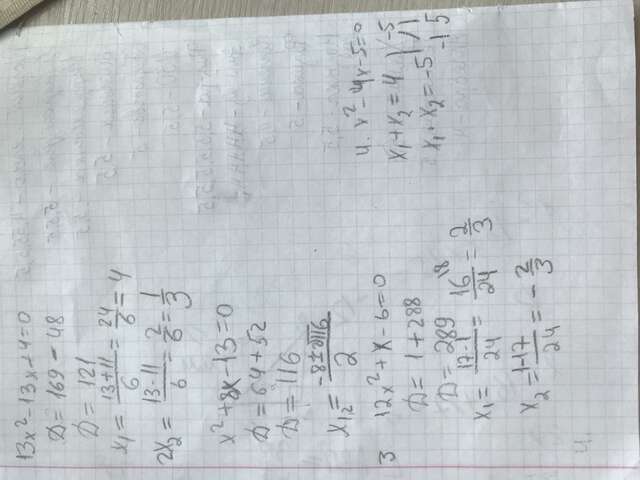 13x²-13x+4=0
D = 169 - 48
D = 121
x₁ = 13+11/6 = 24/6 = 4
2x₂ = 13-11/6 = 2/6 = 1/3
x²+8x-13=0
D = 64+52
D = 116
x₁₂ = -8±√116/2
3 12x²+x-6=0
D = 1+288
D = 289
x₁ = 17-1/24 = 16/24 = 2/3
x₂ = 1-17/24 = -2/3
4. x²-4x-5=0
x₁+x₂=4
x₁·x₂=-5